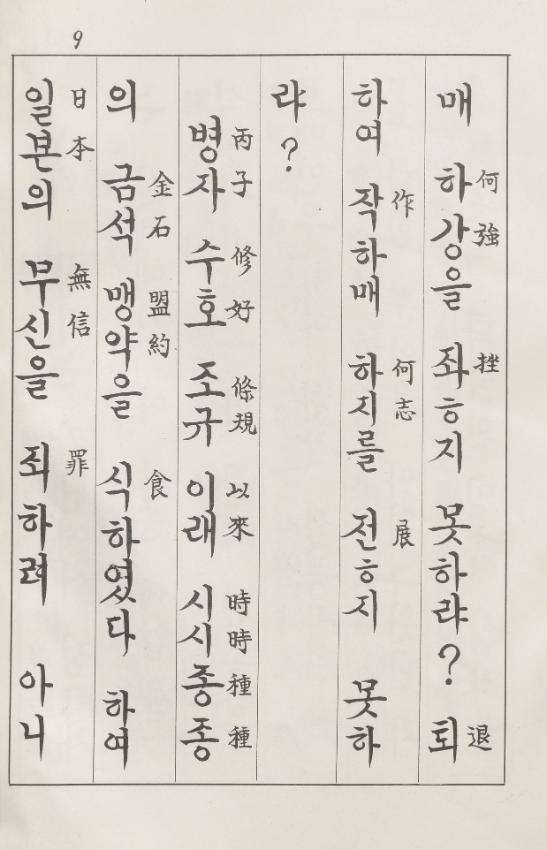 9
매 하강을 좌ᄒᆞ지 못하랴? 퇴
何強 挫 退
하여 작하매 하지를 전ᄒᆞ지 못하
作 何志 展
랴?
병자 수호 조규 이래 시시종종
丙子 修好 條規 以來 時時種種
의 금석 맹약을 식하였다 하여
金石 盟約 食
일본의 무신을 죄하려 아니
日本 無信 罪